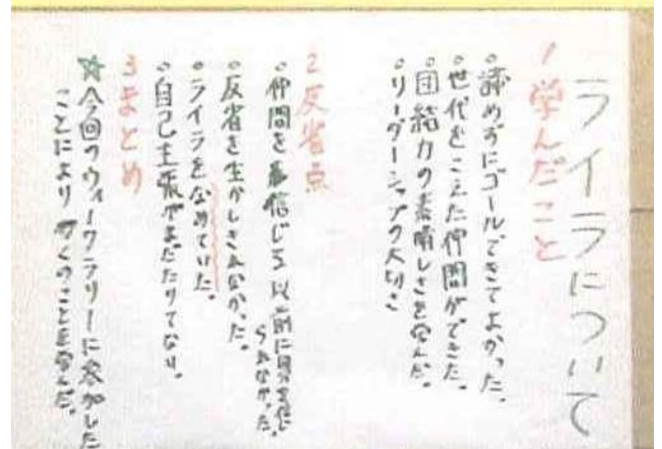 ライラについて
1 学んだこと
。諦めずにゴールできてよかった。
。世代をこえた仲間ができた。
。団結力の素晴しさを学んだ。
。リーダーシップの大切さ
2 反省点
。仲間を信じる以前に自分を信じられなかった。
。反省を生かしきれなかった。
。ライラをなめていた。
。自己主張がまだたりてない。
3 まとめ
☆今回のウォークラリーに参加した
ことにより 多くのことを学んだ。